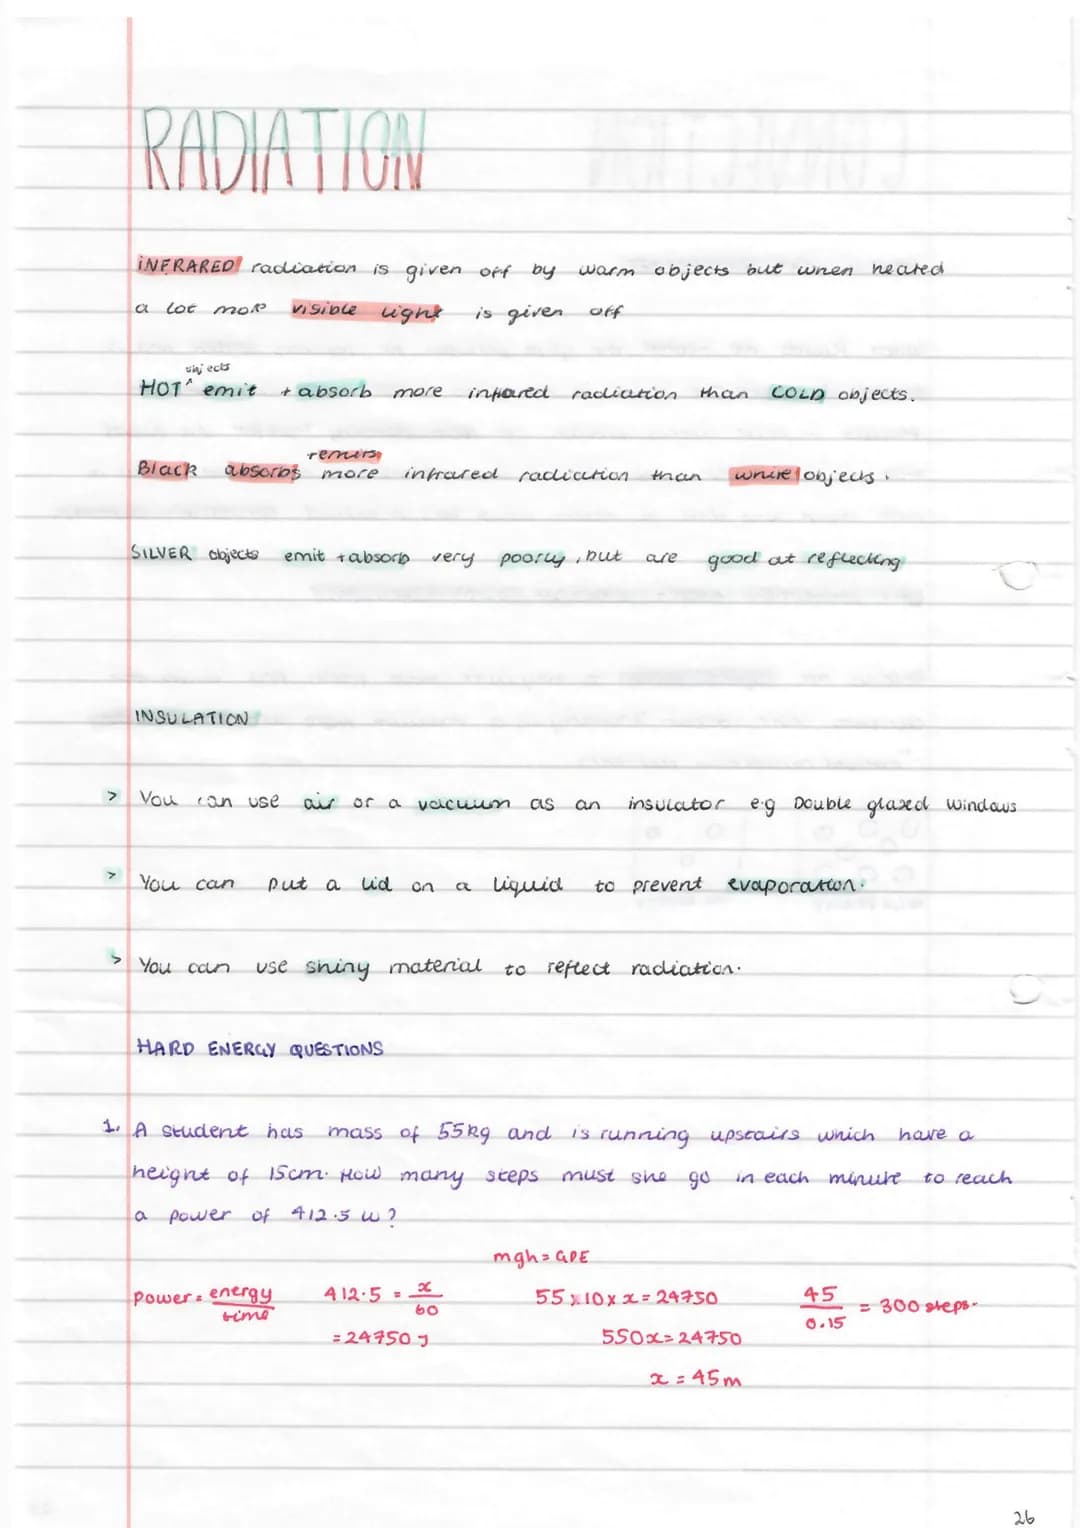 RADIATION
INFRARED radiation is given off by warm objects but when heated
a lot more visible light is given off
objects
HOT ^ emit + absorb more infrared radiation than COLD objects.
+emits
Black absorbs more infrared radiation than white objects.
SILVER objects emit +absorb very poorly, but are good at reflecting
INSULATION
> You can use air or a vacuum as an insulator e.g Double glazed windows
> You can put a lid on a liquid to prevent evaporation.
> You can use shiny material to reflect radiation.
HARD ENERGY QUESTIONS
1. A student has mass of 55kg and is running upstairs which have a
height of 15cm. How many steps must she go in each minute to reach
a power of 412.5 W?
mgh = GPE
power = energy/time 412.5 = x/60 55 x 10 x x = 24750 45/0.15 = 300 steps.
= 24750 J 550x = 24750
x = 45m
26